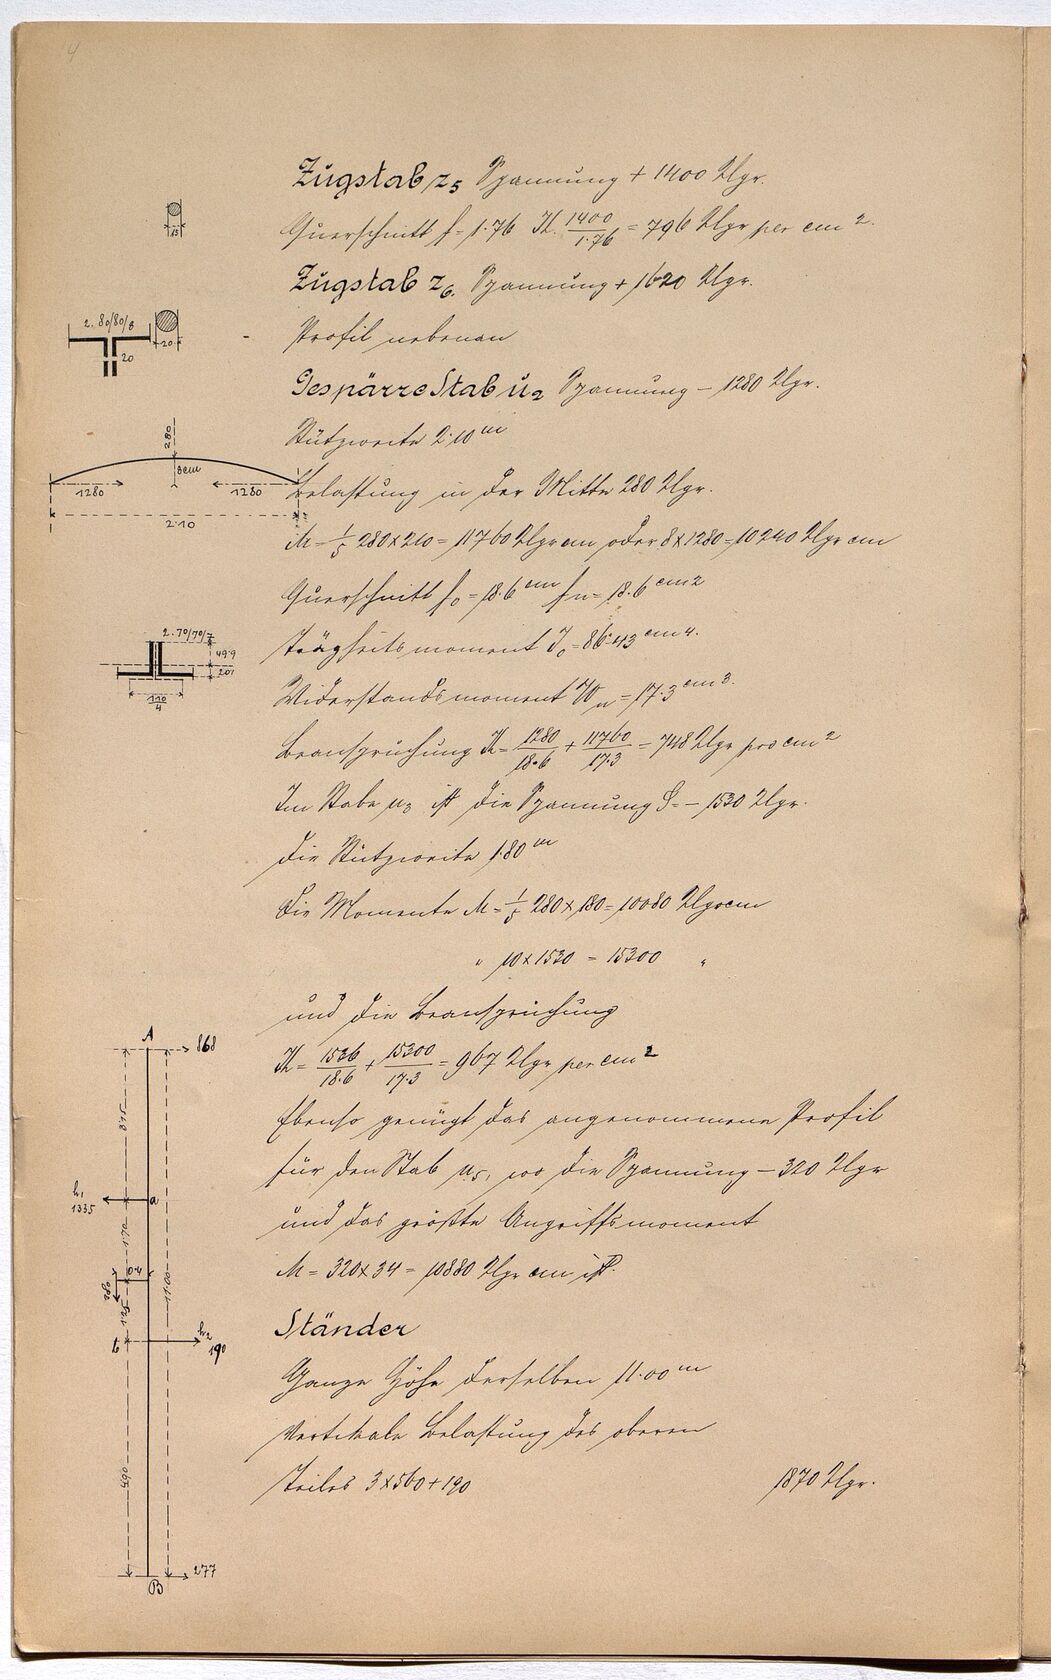 4
Zugstab z5 Spannung + 1400 Klgr.
Querschnitt f = 1.76 K. 1400/1.76 = 796 Klgr per cm 2.
Zugstab z6. Spannung + 1620 Klgr.
Profil nebenan
Gespärre Stab u2 Spannung – 1280 Klgr.
Stützweite 2.10 m
Belastung in der Mitte 280 Klgr.
M = 1/5 280 x 210 = 11760 Klgr cm oder 8 x 1280 = 10240 Klgr cm
Querschnitt fo = 18.6 cm fn = 18.6 cm2
Trägheitsmoment Jo = 86.43 cm 4.
Widerstandsmoment Wn = 17.3 cm 3.
Beanspruchung K = 1280/18.6 + 11760/17.3 = 748 Klgr pro cm 2
Im Stabe u3 ist die Spannung S = – 1530 Klgr.
die Stützweite 1.80 m
die Momente M = 1/5 280 x 180 = 10080 Klgrcm
" 10 x 1530 = 15300 "
und die Beanspruchung
K = 1536/18.6 + 15300/17.3 = 967 Klgr per cm 2
Ebenso genügt das angenommene Profil
für den Stab u5, wo die Spannung – 320 Klgr
und das größte Angriffsmoment
M = 320 x 34 = 10880 Klgr cm ist.
Ständer
Ganze Höhe derselben 11.00 m
Vertikale Belastung des oberen
Teiles 3 x 560 + 190 1870 Klgr.
15
2. 80/80/8
20
20
280
8cm
1280
1280
2.10
2. 70/70/7
49.9
20.1
110/4
A
868
3.15
h1
1335
a
1.70
0.4
280
1.25
11.00
b
h2
190
4.90
277
B